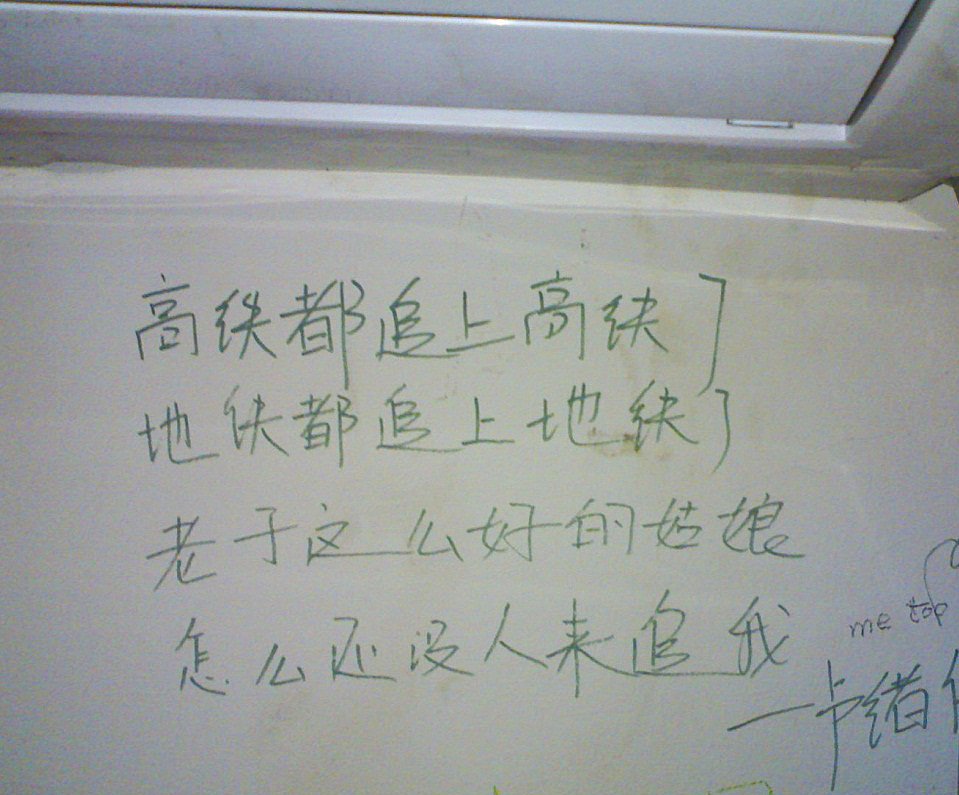 高铁都追上高铁了
地铁都追上地铁了
老子这么好的姑娘
怎么还没人来追我
me top
一卡绪